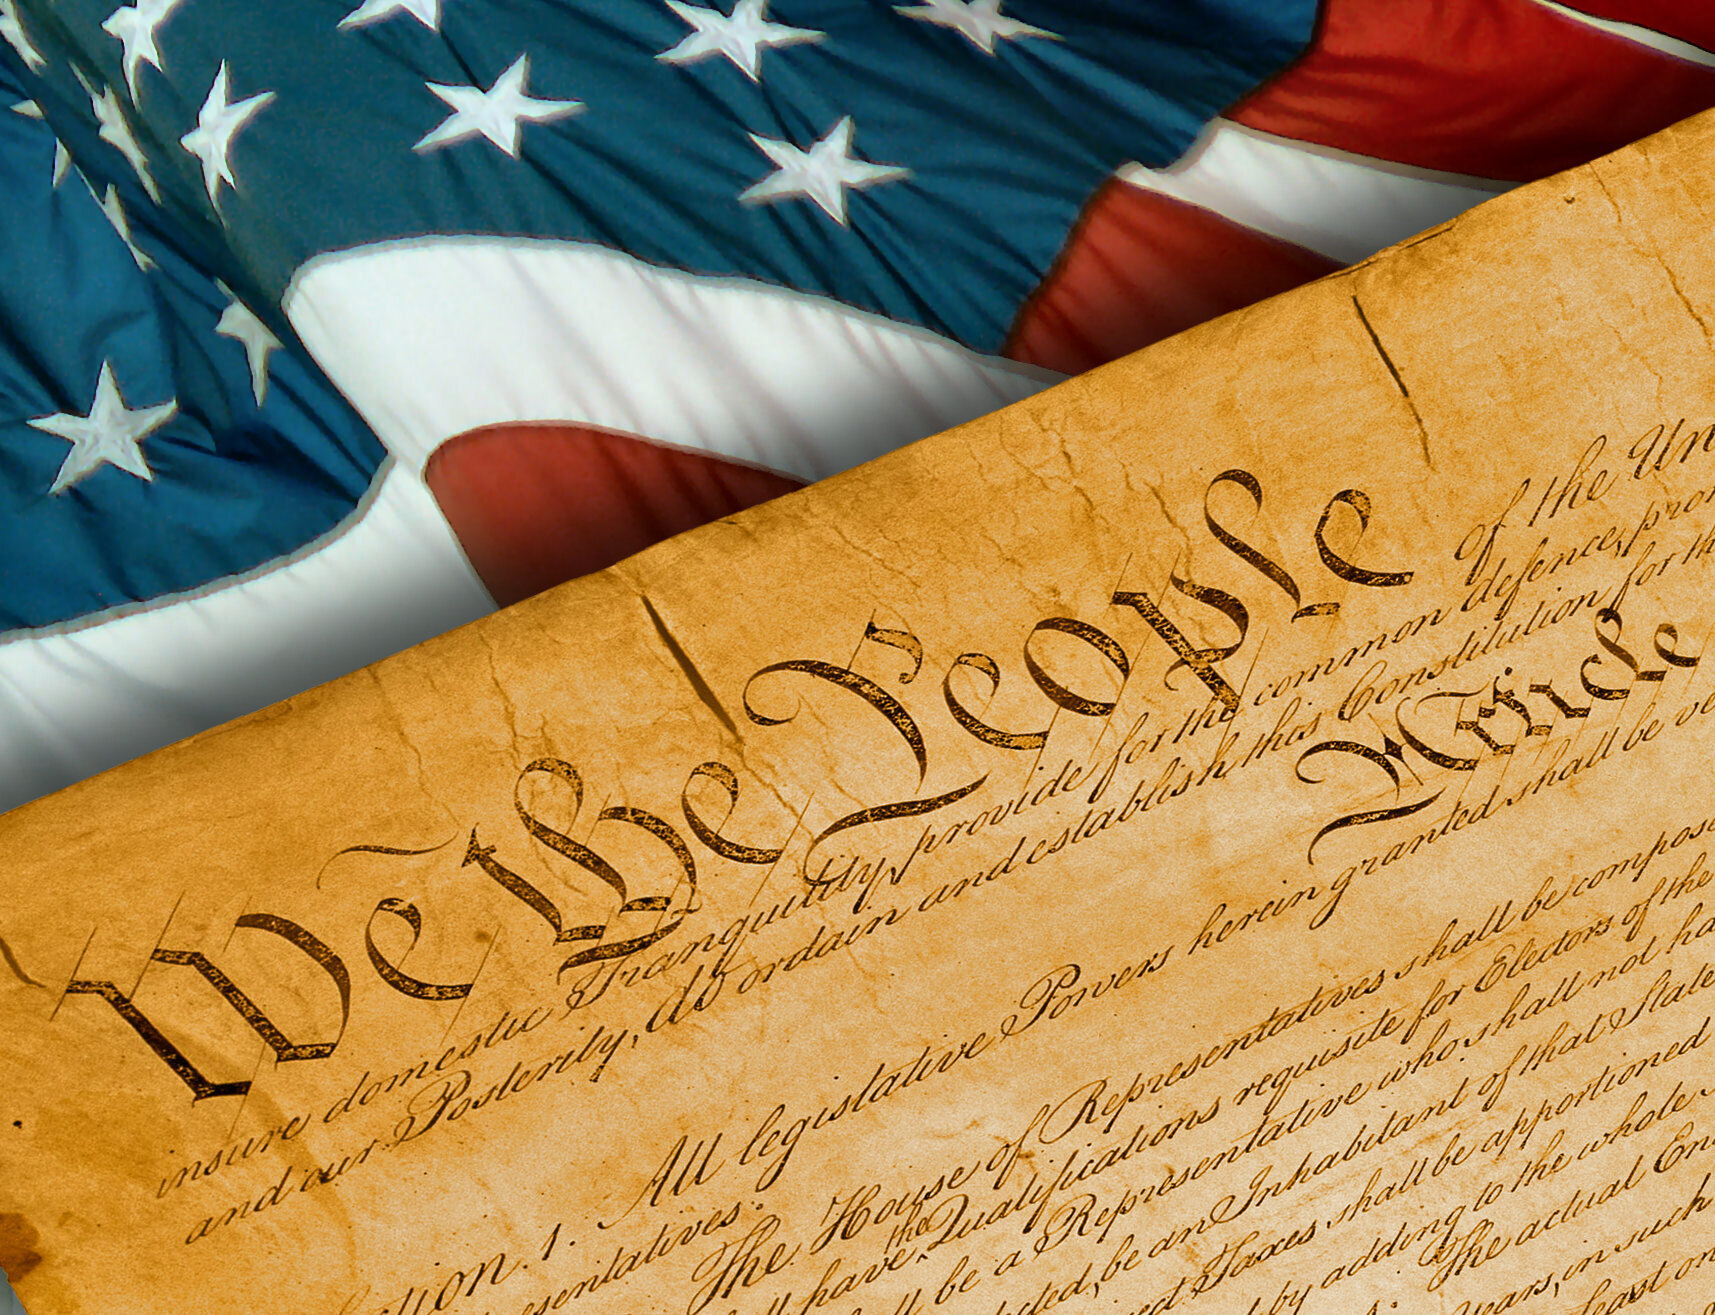 We the People of the Un
insure domestic Tranquility, provide for the common defence, prom
and our Posterity, do ordain and establish this Constitution for th
Article
ction. 1. All legislative Powers herein granted shall be ve
esentatives.
The House of Representatives shall be compos
ll have the Qualifications requisite for Electors of the
ll be a Representative who shall not ha
cted, be an Inhabitant of that State
ect Taxes shall be apportioned
by adding to the whole
The actual En
Years, in such
least on